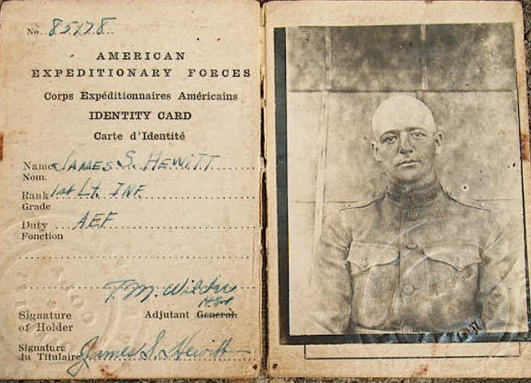 No. 85178
AMERICAN
EXPEDITIONARY FORCES
Corps Expéditionnaires Américains
IDENTITY CARD
Carte d'Identité
Name JAMES S. HEWITT
Nom.
Rank 1st Lt. INF.
Grade
Duty AEF
Fonction
T. M.
Signature Adjutant General.
of Holder
Signature
du Titulaire James S. Hewitt